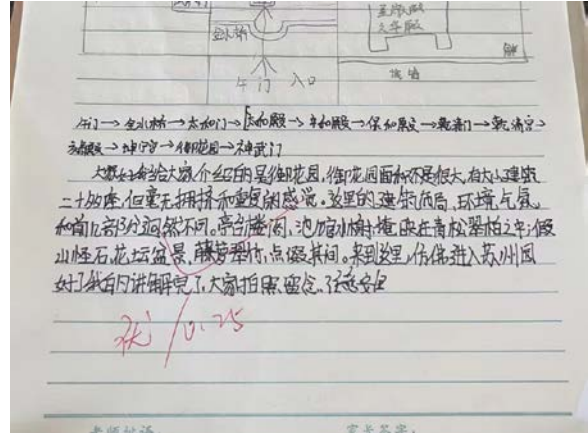 金水桥
午门 入口
午门→金水桥→太和门→太和殿→中和殿→保和殿→乾清门→乾清宫→
交泰殿→坤宁宫→御花园→神武门
大家好我给大家介绍的是御花园,御花园面积不是很大,有大小建筑
二十多座,但毫无拥挤和重复的感觉。这里的建筑布局、环境气氛,
和前几部分迥然不同。亭台楼阁、池馆水榭,掩映在青松翠柏之中;假
山怪石、花坛盆景、藤萝翠竹,点缀其间。来到这里,仿佛进入苏州园
好了我的讲解完了,大家拍照留念,注意安全
优 10.25